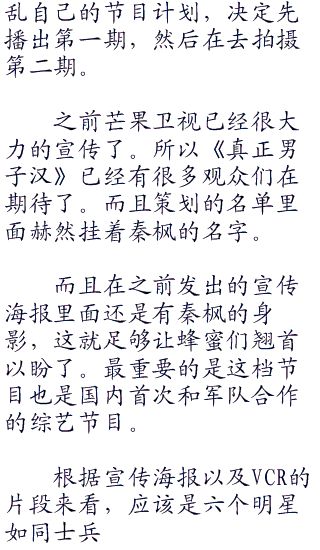 乱自己的节目计划，决定先
播出第一期，然后在去拍摄
第二期。
之前芒果卫视已经很大
力的宣传了。所以《真正男
子汉》已经有很多观众们在
期待了。而且策划的名单里
面赫然挂着秦枫的名字。
而且在之前发出的宣传
海报里面还是有秦枫的身
影，这就足够让蜂蜜们翘首
以盼了。最重要的是这档节
目也是国内首次和军队合作
的综艺节目。
根据宣传海报以及VCR的
片段来看，应该是六个明星
如同士兵